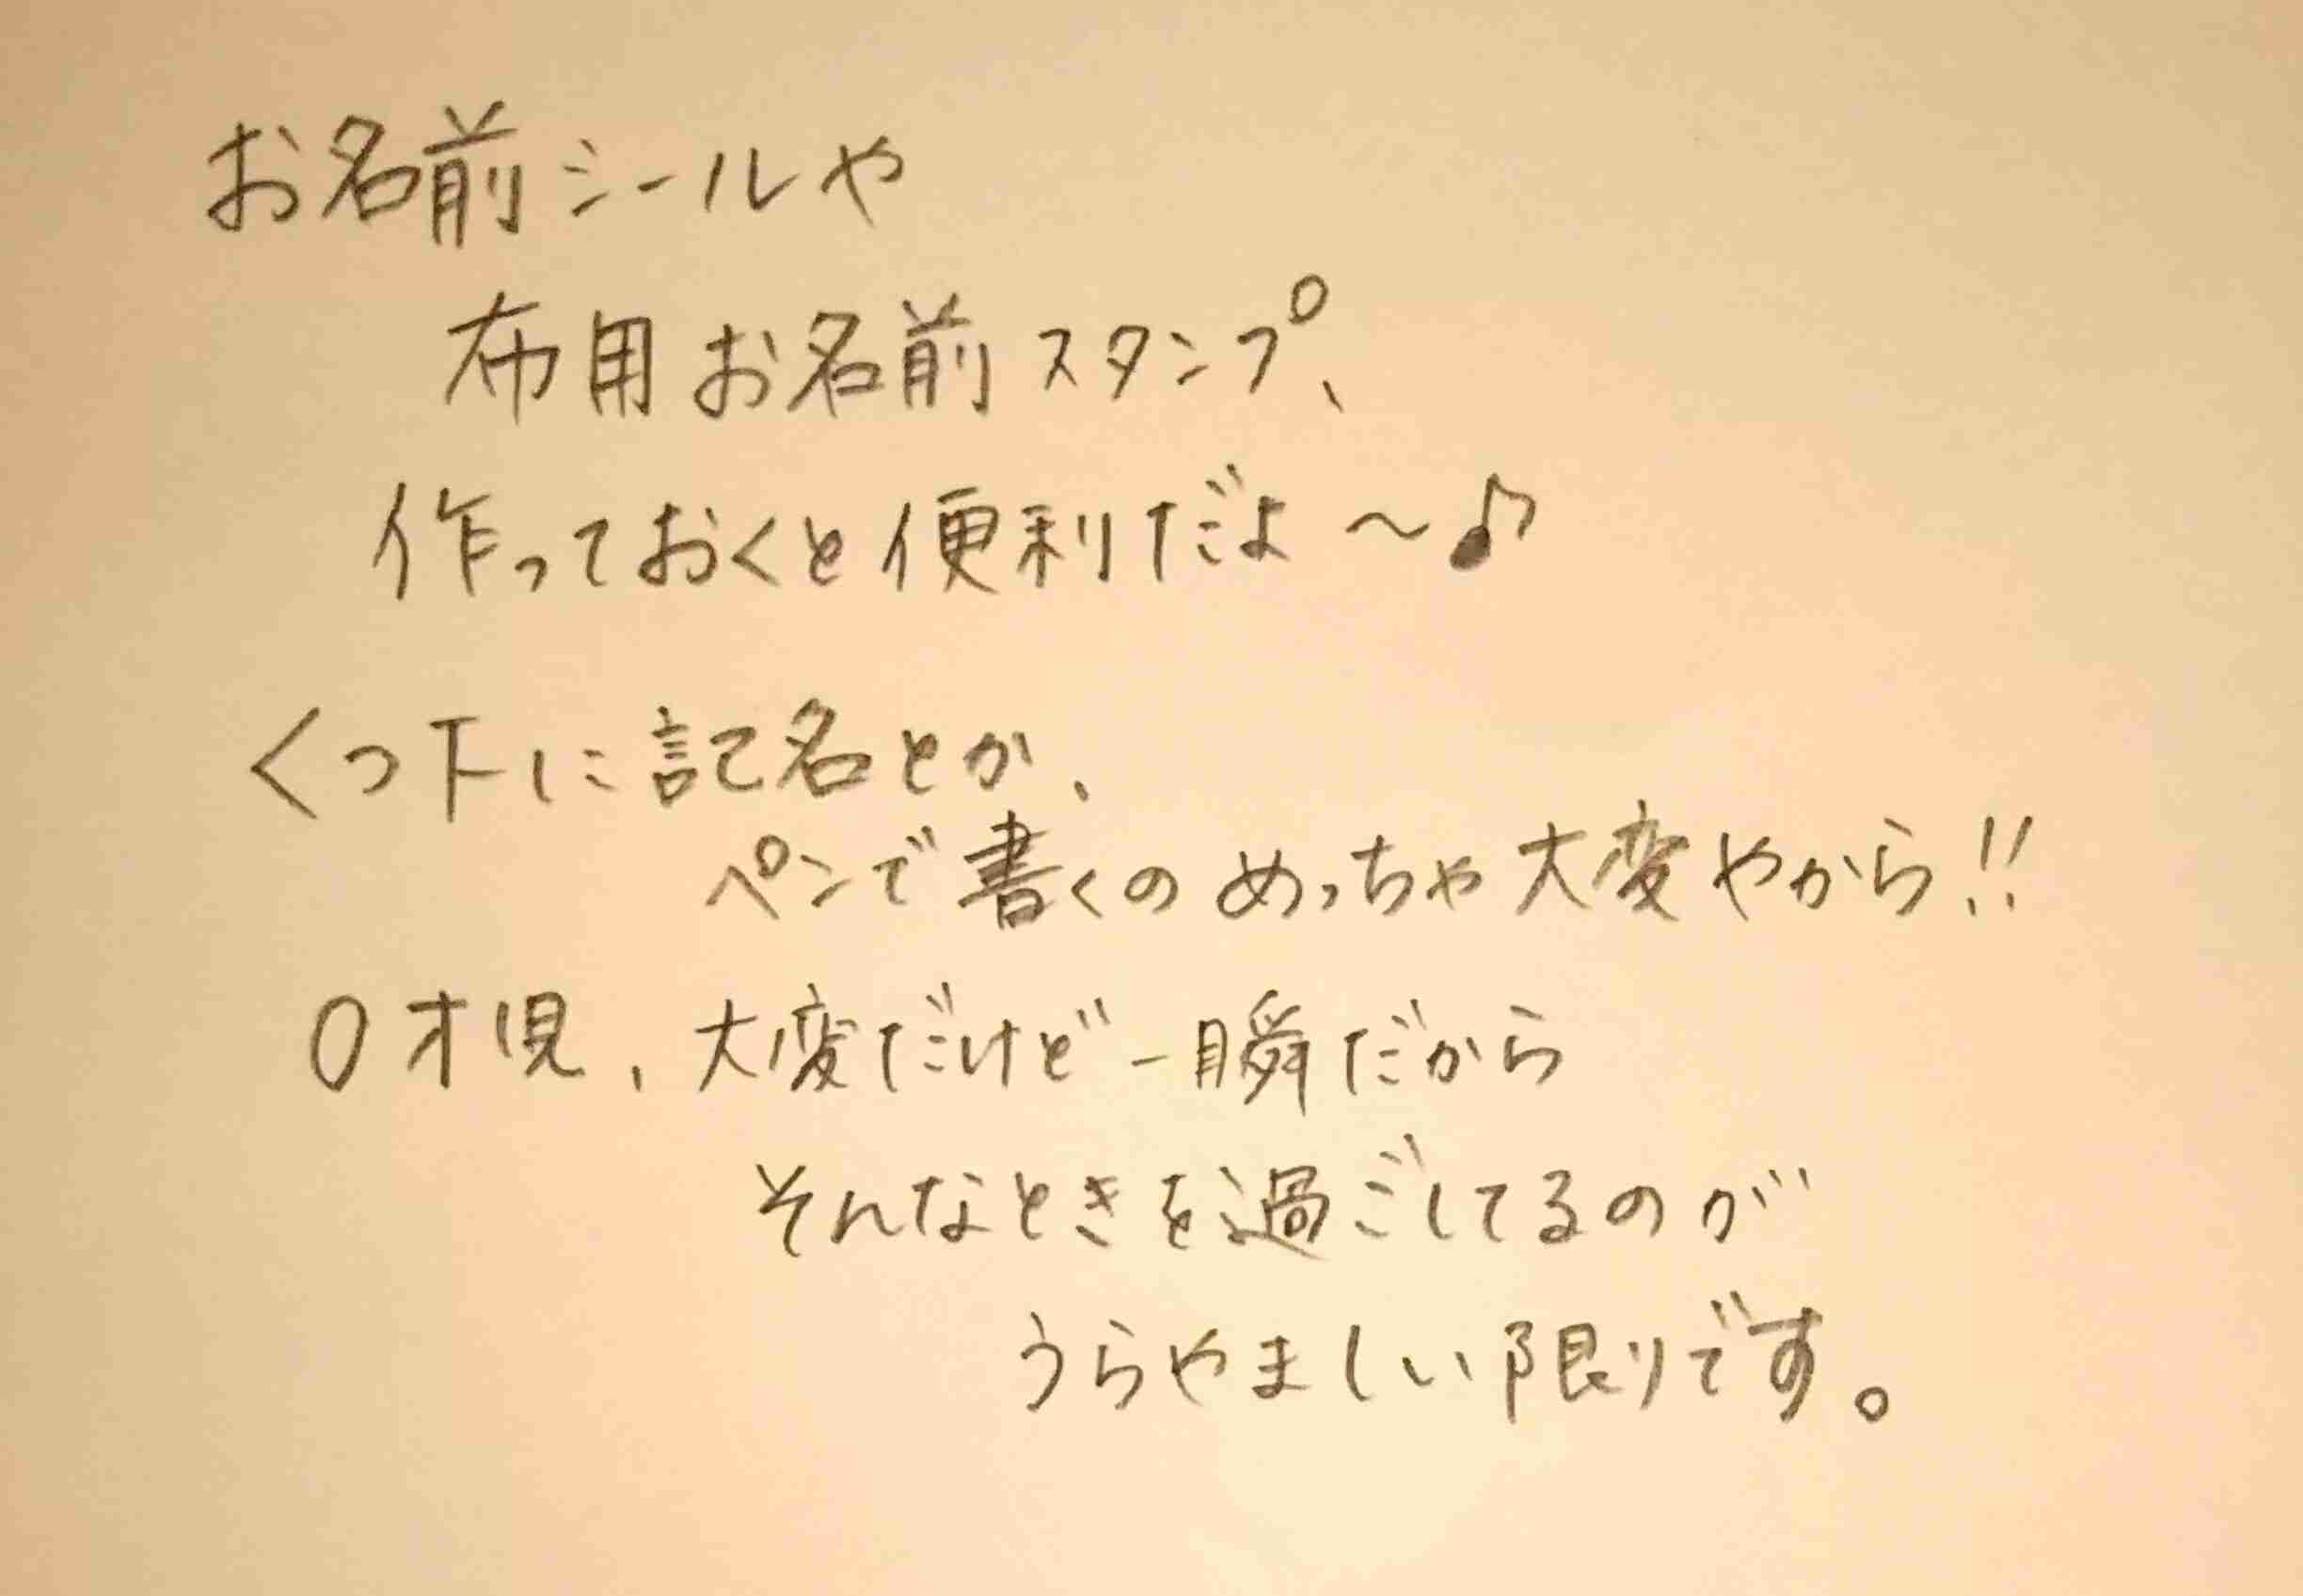 お名前シールや
布用お名前スタンプ、
作っておくと便利だよ〜♪
くつ下に記名とか、
ペンで書くのめっちゃ大変やから!!
0才児、大変だけど一瞬だから
そんなときを過ごしてるのが
うらやましい限りです。